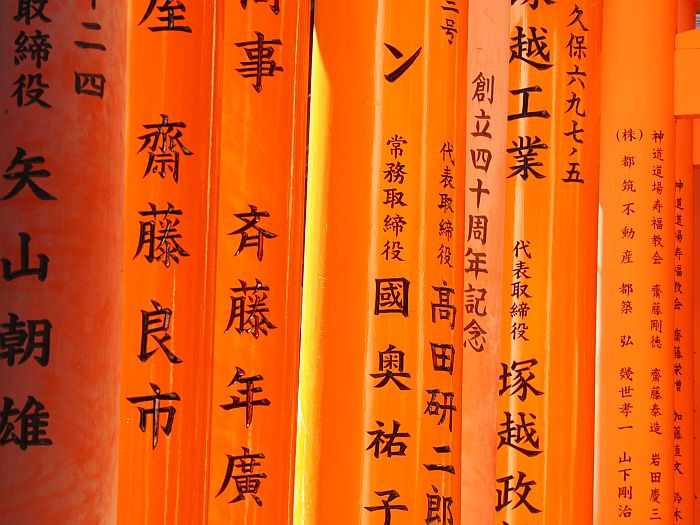 神道道場寿福教会 齋藤 加藤直文 鈴木
神道道場寿福教会 齋藤剛徳 齋藤泰造 岩田慶三
(株)都筑不動産 都築 弘 幾世孝一 山下剛治
久保六九七ノ五
塚越工業 代表取締役 塚越政
創立四十周年記念
三号 代表取締役 高田研二郎
ン 常務取締役 國奥祐子
事 斉藤年廣
屋 齋藤良市
二四
取締役 矢山朝雄